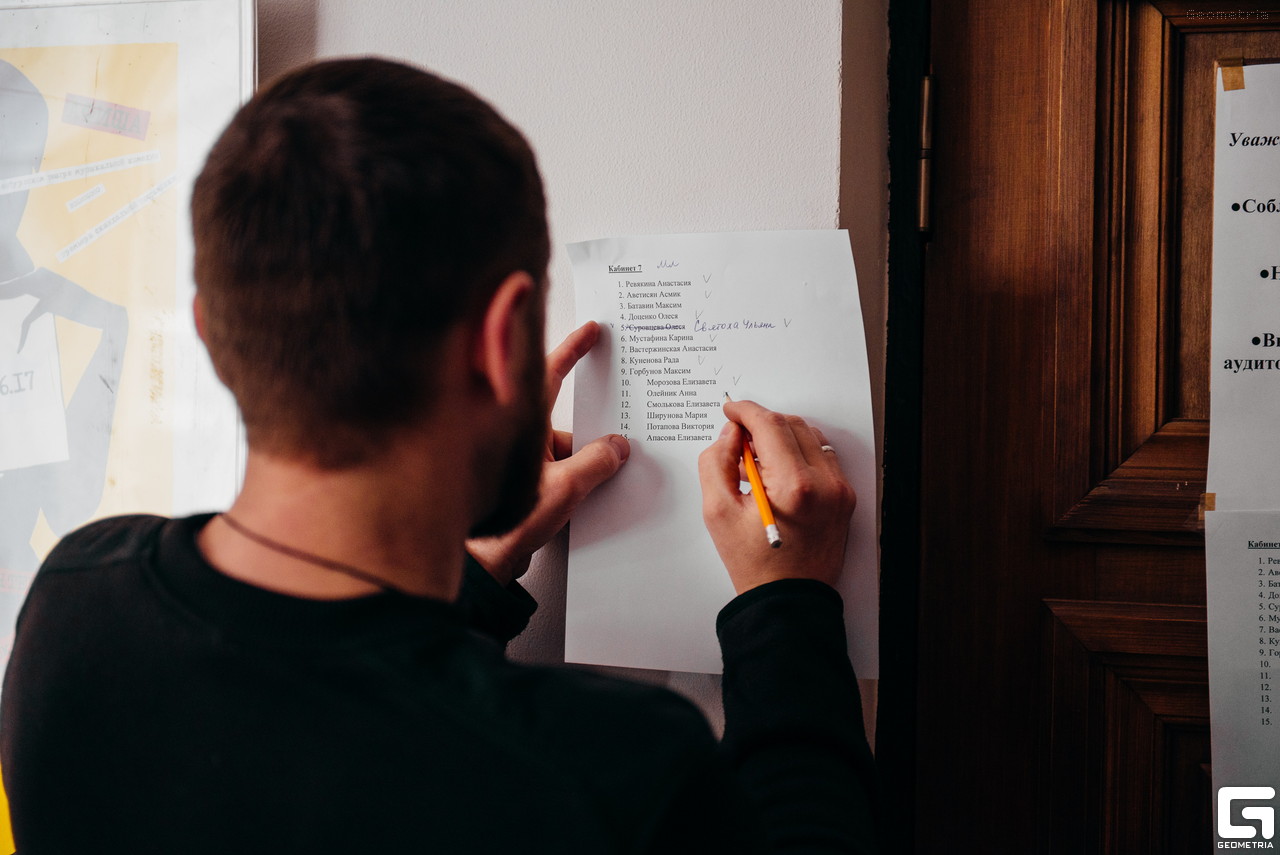 Geometria
Кабинет 7 Мл
1. Ревякина Анастасия V
2. Аветисян Асмик V
3. Батавин Максим
4. Доценко Олеся V
5. Суровцева Олеся Святоха Ульяна V
6. Мустафина Карина V
7. Вастержинская Анастасия
8. Куненова Рада V
9. Горбунов Максим V
10. Морозова Елизавета V
11. Олейник Анна
12. Смолькова Елизавета
13. Ширунова Мария
14. Потапова Виктория
15. Апасова Елизавета
6.17
Уваж
•Собл
•Н
•Вы
аудито
Кабинет
1. Рев
2. Аве
3. Бат
4. До
5. Сур
6. Му
7. Ва
8. Ку
9. Го
10.
11.
12.
13.
14.
15.
GEOMETRIA